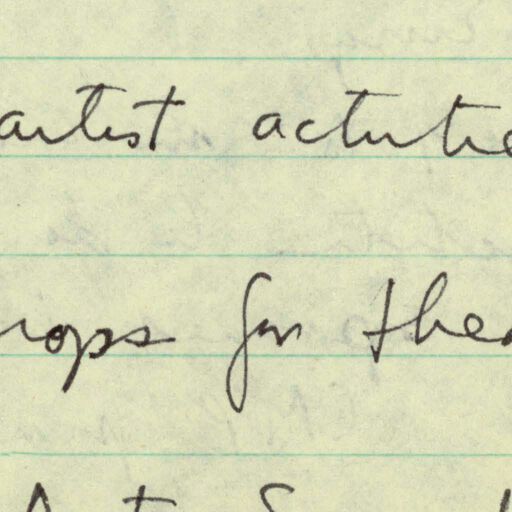 artist activitie
rops for thea